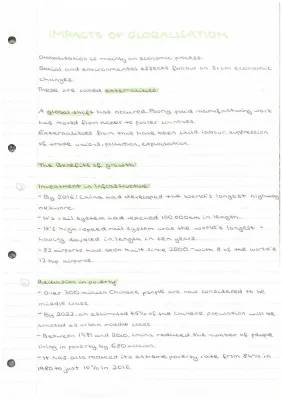 IMPACTS OF GLOBALISATION
Globalisation is mainly an economic process.
Social and environmental effects follow on from economic
changes.
These are called externalities.
A global shift has occured. Poorly paid manufacturing work
has moved from richer to poorer countries.
Externalities from this have been child labour, suppression
of trade unions, pollution, exploitation.
The Benefits of growth:
Investment in Infrastructure:
- By 2016 China had developed the world's longest highway
network.
- It's rail system had reached 100 000km in length.
- It's high speed rail system was the world's longest -
having doubled in length in ten years.
- 82 airports had been built since 2000 - with 8 of the world's
12 by airport.
Reduction in poverty:
- Over 300 million Chinese people are now considered to be
middle class.
- By 2022 an estimated 45% of the Chinese population will be
counted as urban middle class
- Between 1981 and 2010, China reduced the number of people
living in poverty by 680 million.
- It has also reduced its extreme poverty rate from 84% in
1980 to just 10% in 2016.